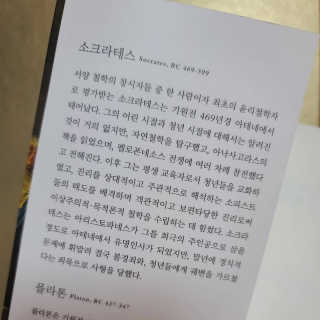 소크라테스 Socrates, BC 469-399
서양 철학의 창시자들 중 한 사람이자 최초의 윤리철학자
로 평가받는 소크라테스는 기원전 469년경 아테네에서
태어났다. 그의 어린 시절과 청년 시절에 대해서는 알려진
것이 거의 없지만, 자연철학을 탐구했고, 아낙사고라스의
책을 읽었으며, 펠로폰네소스 전쟁에 여러 차례 참전했다
고 전해진다. 이후 그는 평생 교육자로서 청년들을 교화하
였고, 진리를 상대적이고 주관적으로 해석하는 소피스트
들의 태도를 배격하며 객관적이고 보편타당한 진리로써
이상주의적·목적론적 철학을 수립하는 데 힘썼다. 소크라
테스는 아리스토파네스가 그를 희극의 주인공으로 삼을
정도로 아테네에서 유명인사가 되었지만, 말년에 정치적
문제에 휘말려 결국 불경죄와, 청년들에게 궤변을 가르쳤
다는 죄목으로 사형을 당했다.
플라톤 Platon, BC 427-347
플라톤은